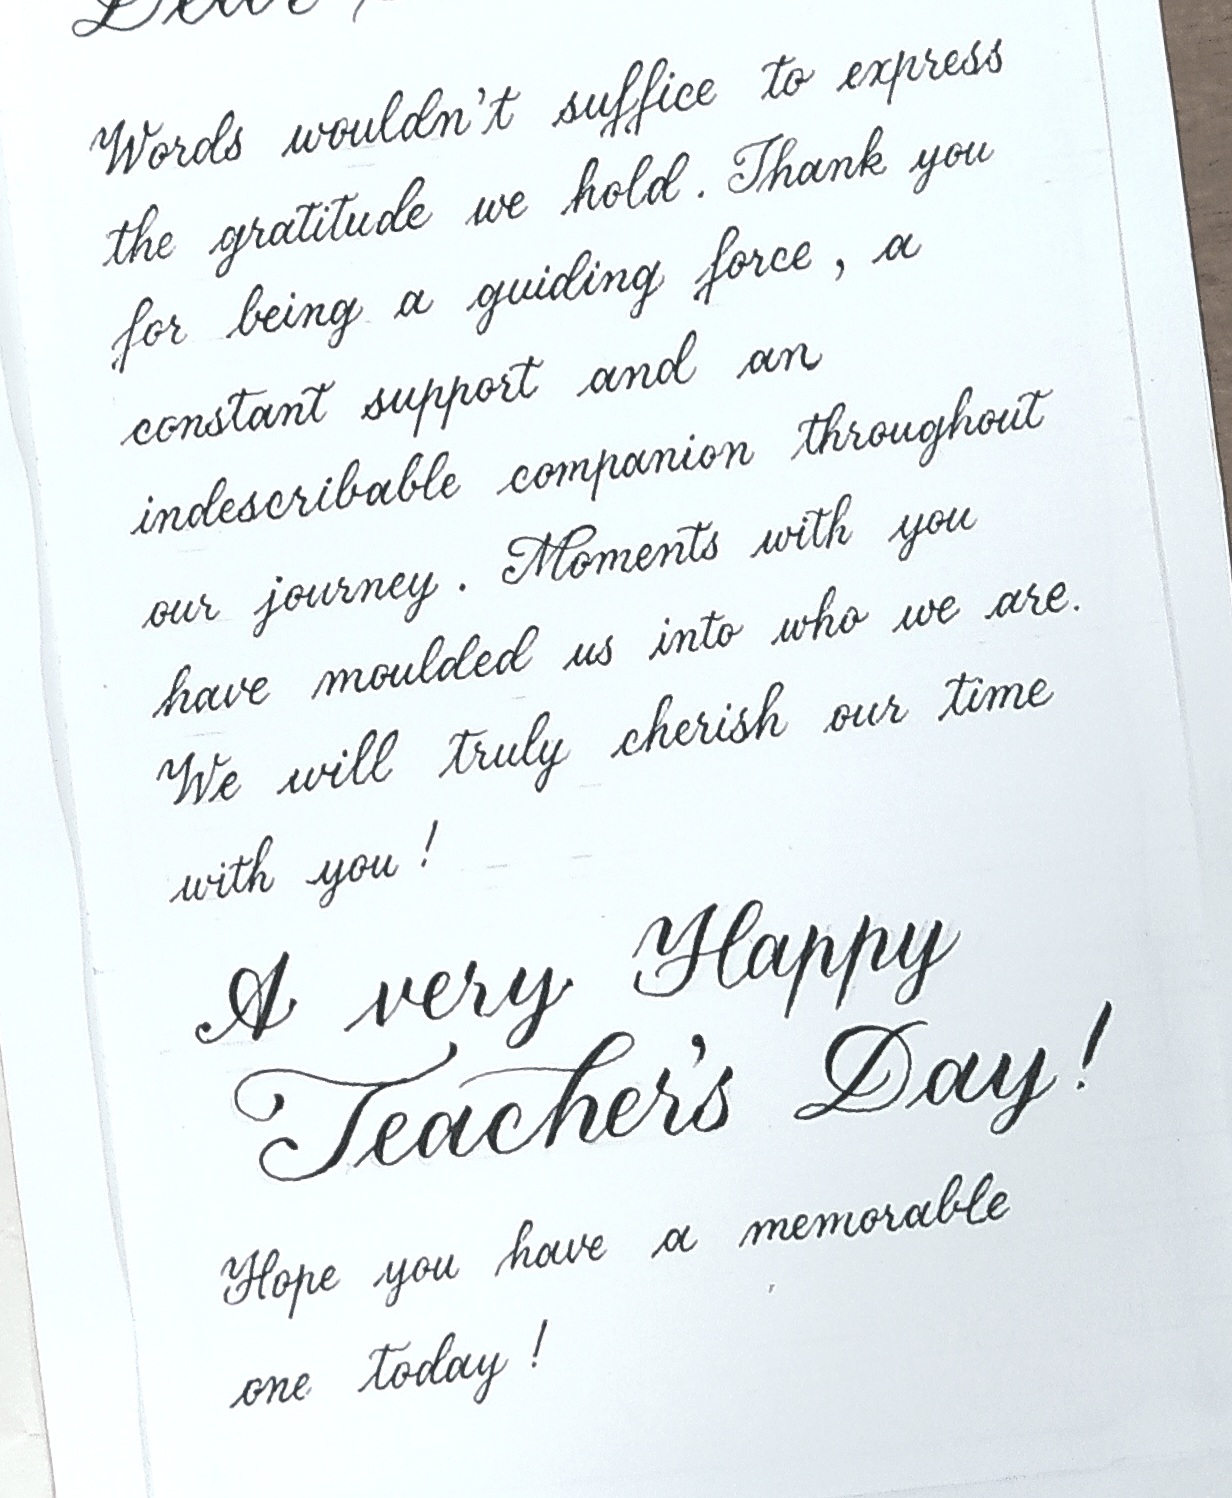 Dear
Words wouldn't suffice to express
the gratitude we hold. Thank you
for being a guiding force, a
constant support and an
indescribable companion throughout
our journey. Moments with you
have moulded us into who we are.
We will truly cherish our time
with you!
A very Happy
Teacher's Day!
Hope you have a memorable
one today!